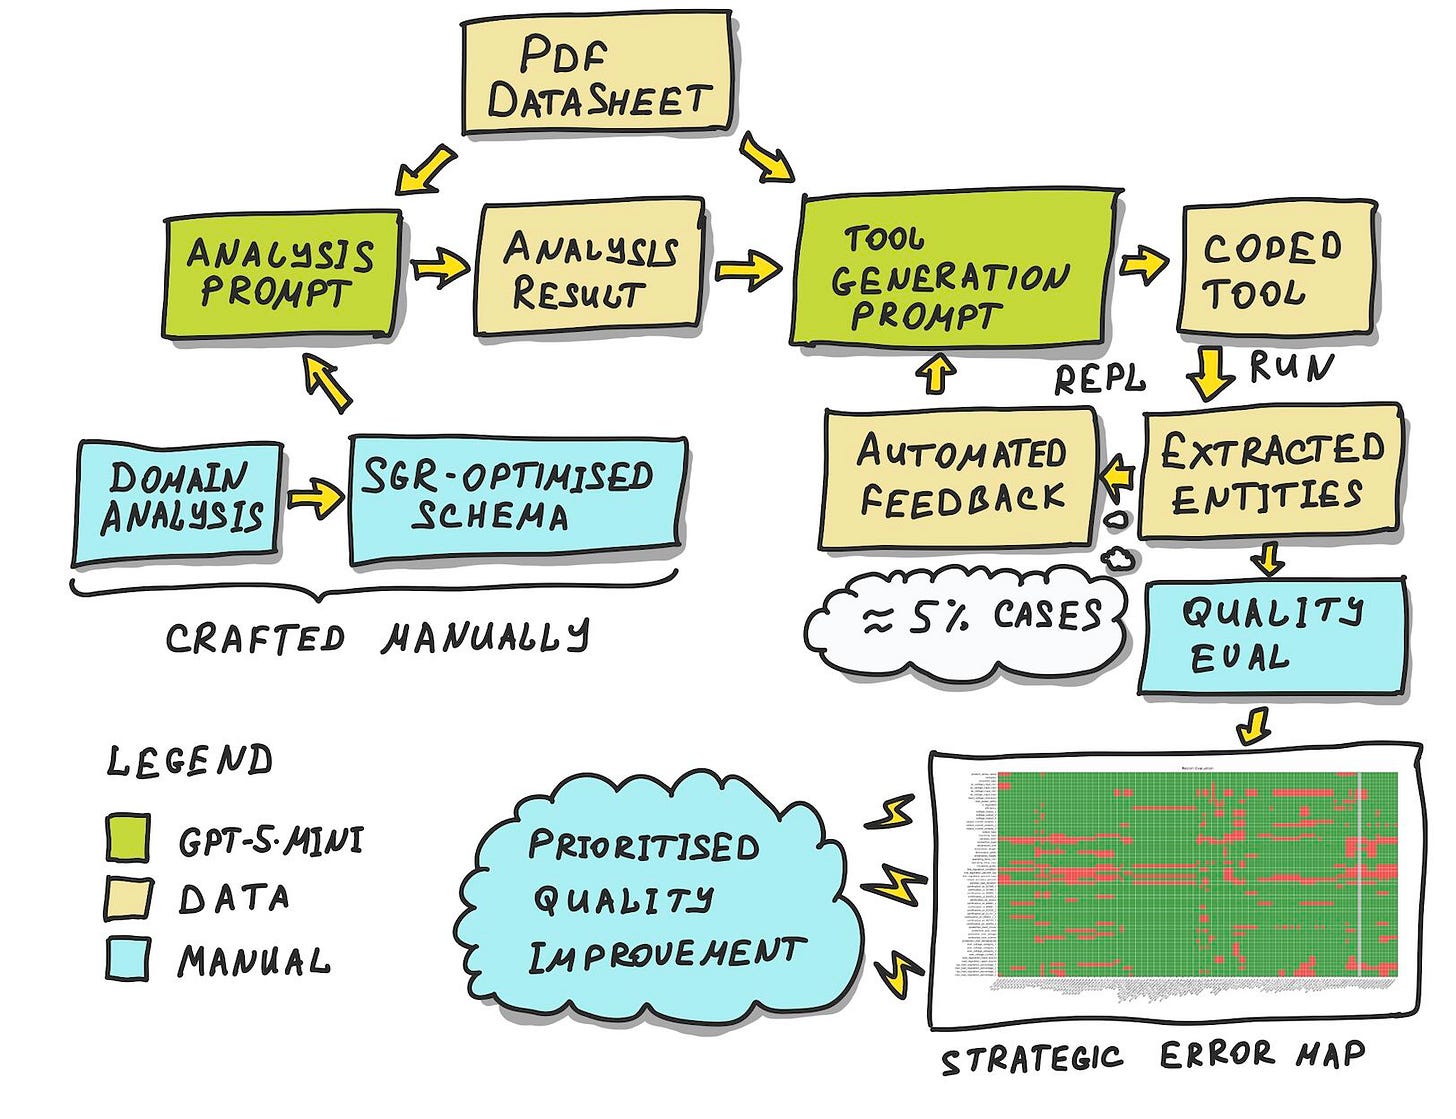 PDF
DATASHEET
ANALYSIS
PROMPT
ANALYSIS
RESULT
TOOL
GENERATION
PROMPT
CODED
TOOL
REPL
RUN
DOMAIN
ANALYSIS
SGR-OPTIMISED
SCHEMA
AUTOMATED
FEEDBACK
EXTRACTED
ENTITIES
CRAFTED MANUALLY
≈ 5% CASES
QUALITY
EVAL
LEGEND
GPT-5-MINI
DATA
MANUAL
PRIORITISED
QUALITY
IMPROVEMENT
STRATEGIC ERROR MAP